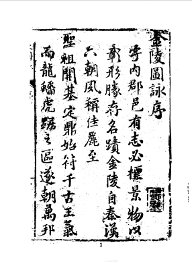 金陵圖詠序
宇内郡邑有志必標景物以
彰形勝存名蹟金陵自秦漢
六朝夙稱佳麗至
聖祖開基定鼎始符千古王氣
而龍蟠虎踞之區遂朝萬邦